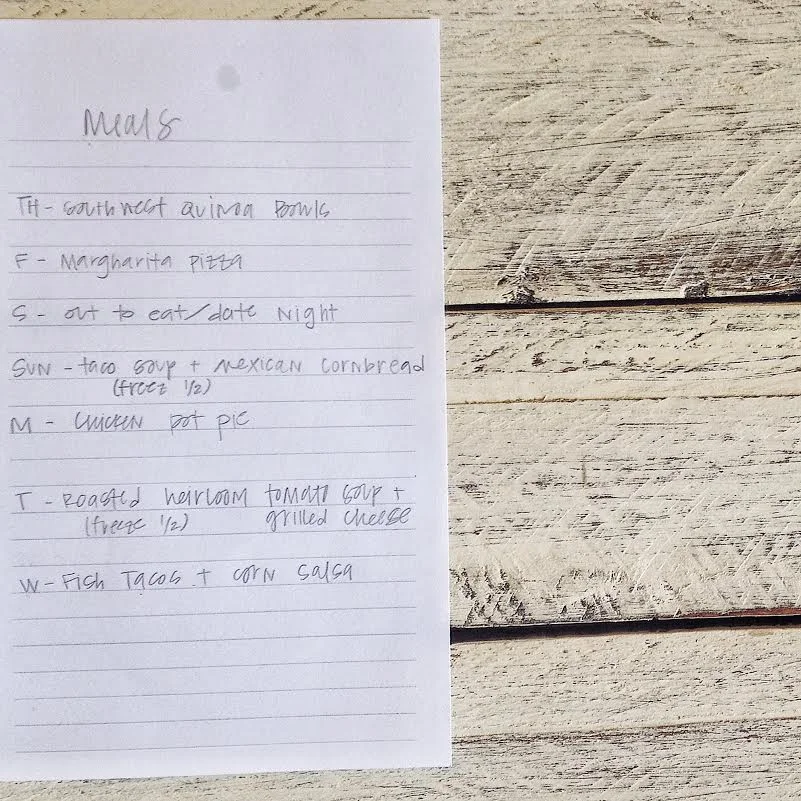 Meals
TH - Southwest Quinoa Bowls
F - Margharita Pizza
S - out to eat/date Night
SUN - taco soup + Mexican cornbread
(freez 1/2)
M - Chicken pot pie
T - Roasted heirloom tomato soup +
(freeze 1/2) grilled cheese
W - Fish Tacos + corn salsa